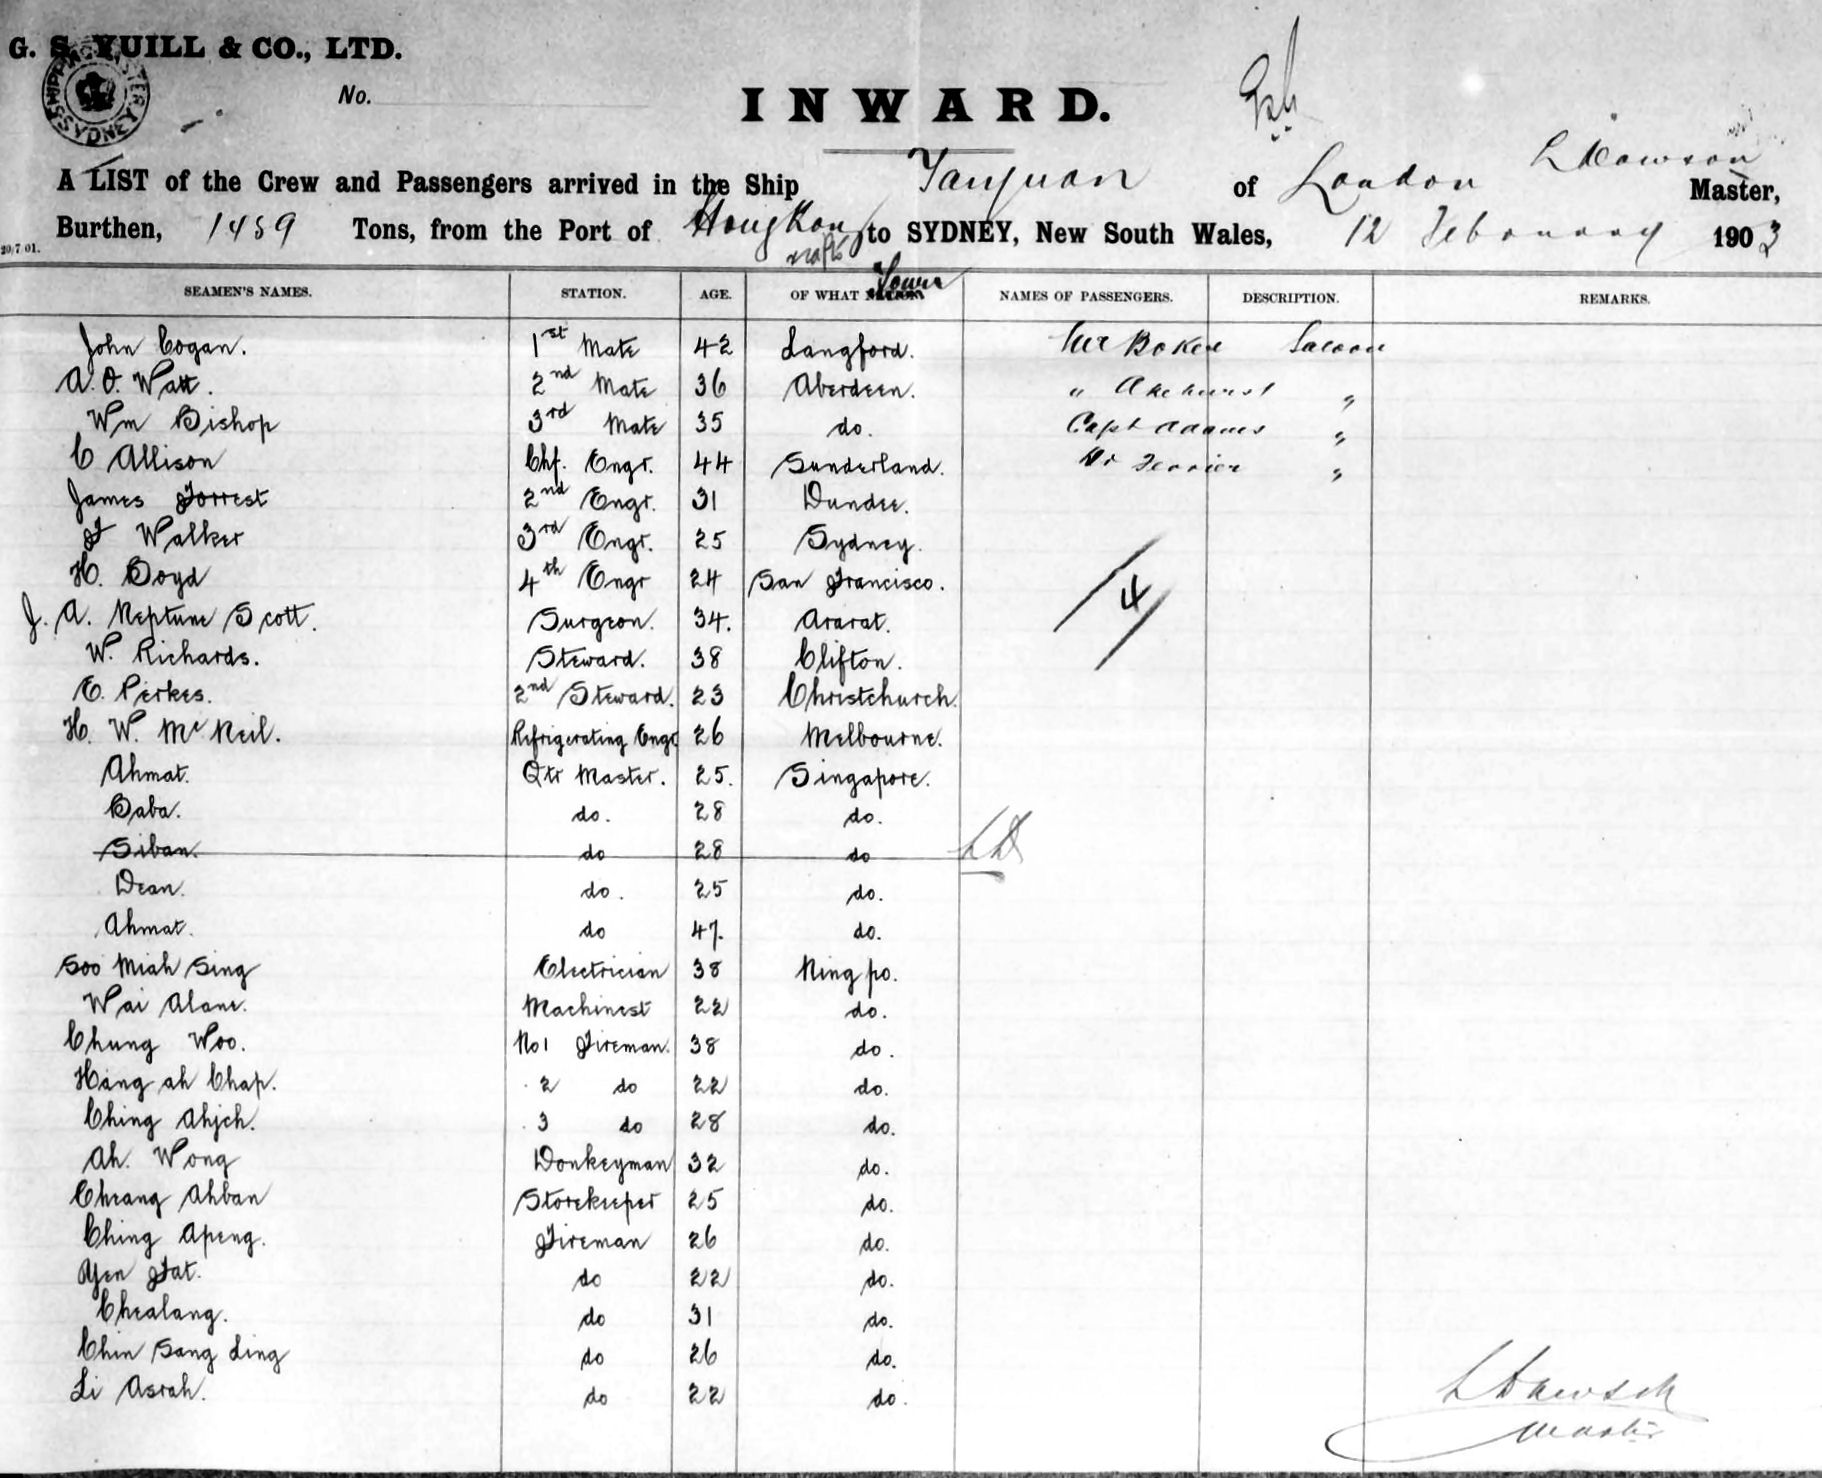 G. S. YUILL & CO., LTD.
SHIPPING MASTER SYDNEY
No.
INWARD.
A LIST of the Crew and Passengers arrived in the Ship Taiyuan of London L Dawson Master,
Burthen, 1459 Tons, from the Port of Hong Kong to SYDNEY, New South Wales, 12 February 1903
20/7 01.
SEAMEN'S NAMES. STATION. AGE. OF WHAT NATION Town NAMES OF PASSENGERS. DESCRIPTION. REMARKS.
John Cogan. 1st Mate 42 Langford. Mr Baker Saloon
A. O. Watt. 2nd Mate 36 Aberdeen. " Akehurst "
Wm Bishop 3rd Mate 35 do. Capt Adams "
C Allison Chf. Engr. 44 Sunderland. Dr Ferrier "
James Forrest 2nd Engr. 31 Dundee.
F Walker 3rd Engr. 25 Sydney.
H. Boyd 4th Engr 24 San Francisco.
4
J. A. Neptune Scott. Surgeon. 34. Ararat.
W. Richards. Steward. 38 Clifton.
E. Perkes. 2nd Steward. 23 Christchurch.
H. W. Mc Neil. Refrigerating Engr 26 Melbourne.
Ahmat. Qtr Master. 25. Singapore.
Baba. do. 28 do.
Siban. do 28 do LD
Dean. do. 25 do.
Ahmat. do 47. do.
Soo Miah Sing Electrician 38 Ningpo.
Wai Alane. Machinest 22 do.
Chung Woo. No 1 Fireman. 38 do.
Hang ah Chap. 2 do 22 do.
Ching Ahjch. 3 do 28 do.
Ah. Wong Donkeyman 32 do.
Cheang Ahban Storekeeper 25 do.
Ching Apeng. Fireman 26 do.
Yen Fat. do 22 do.
Chealang. do 31 do.
Chin Sang Ling do 26 do.
Li Asrah. do 22 do.
L Dawson
Master